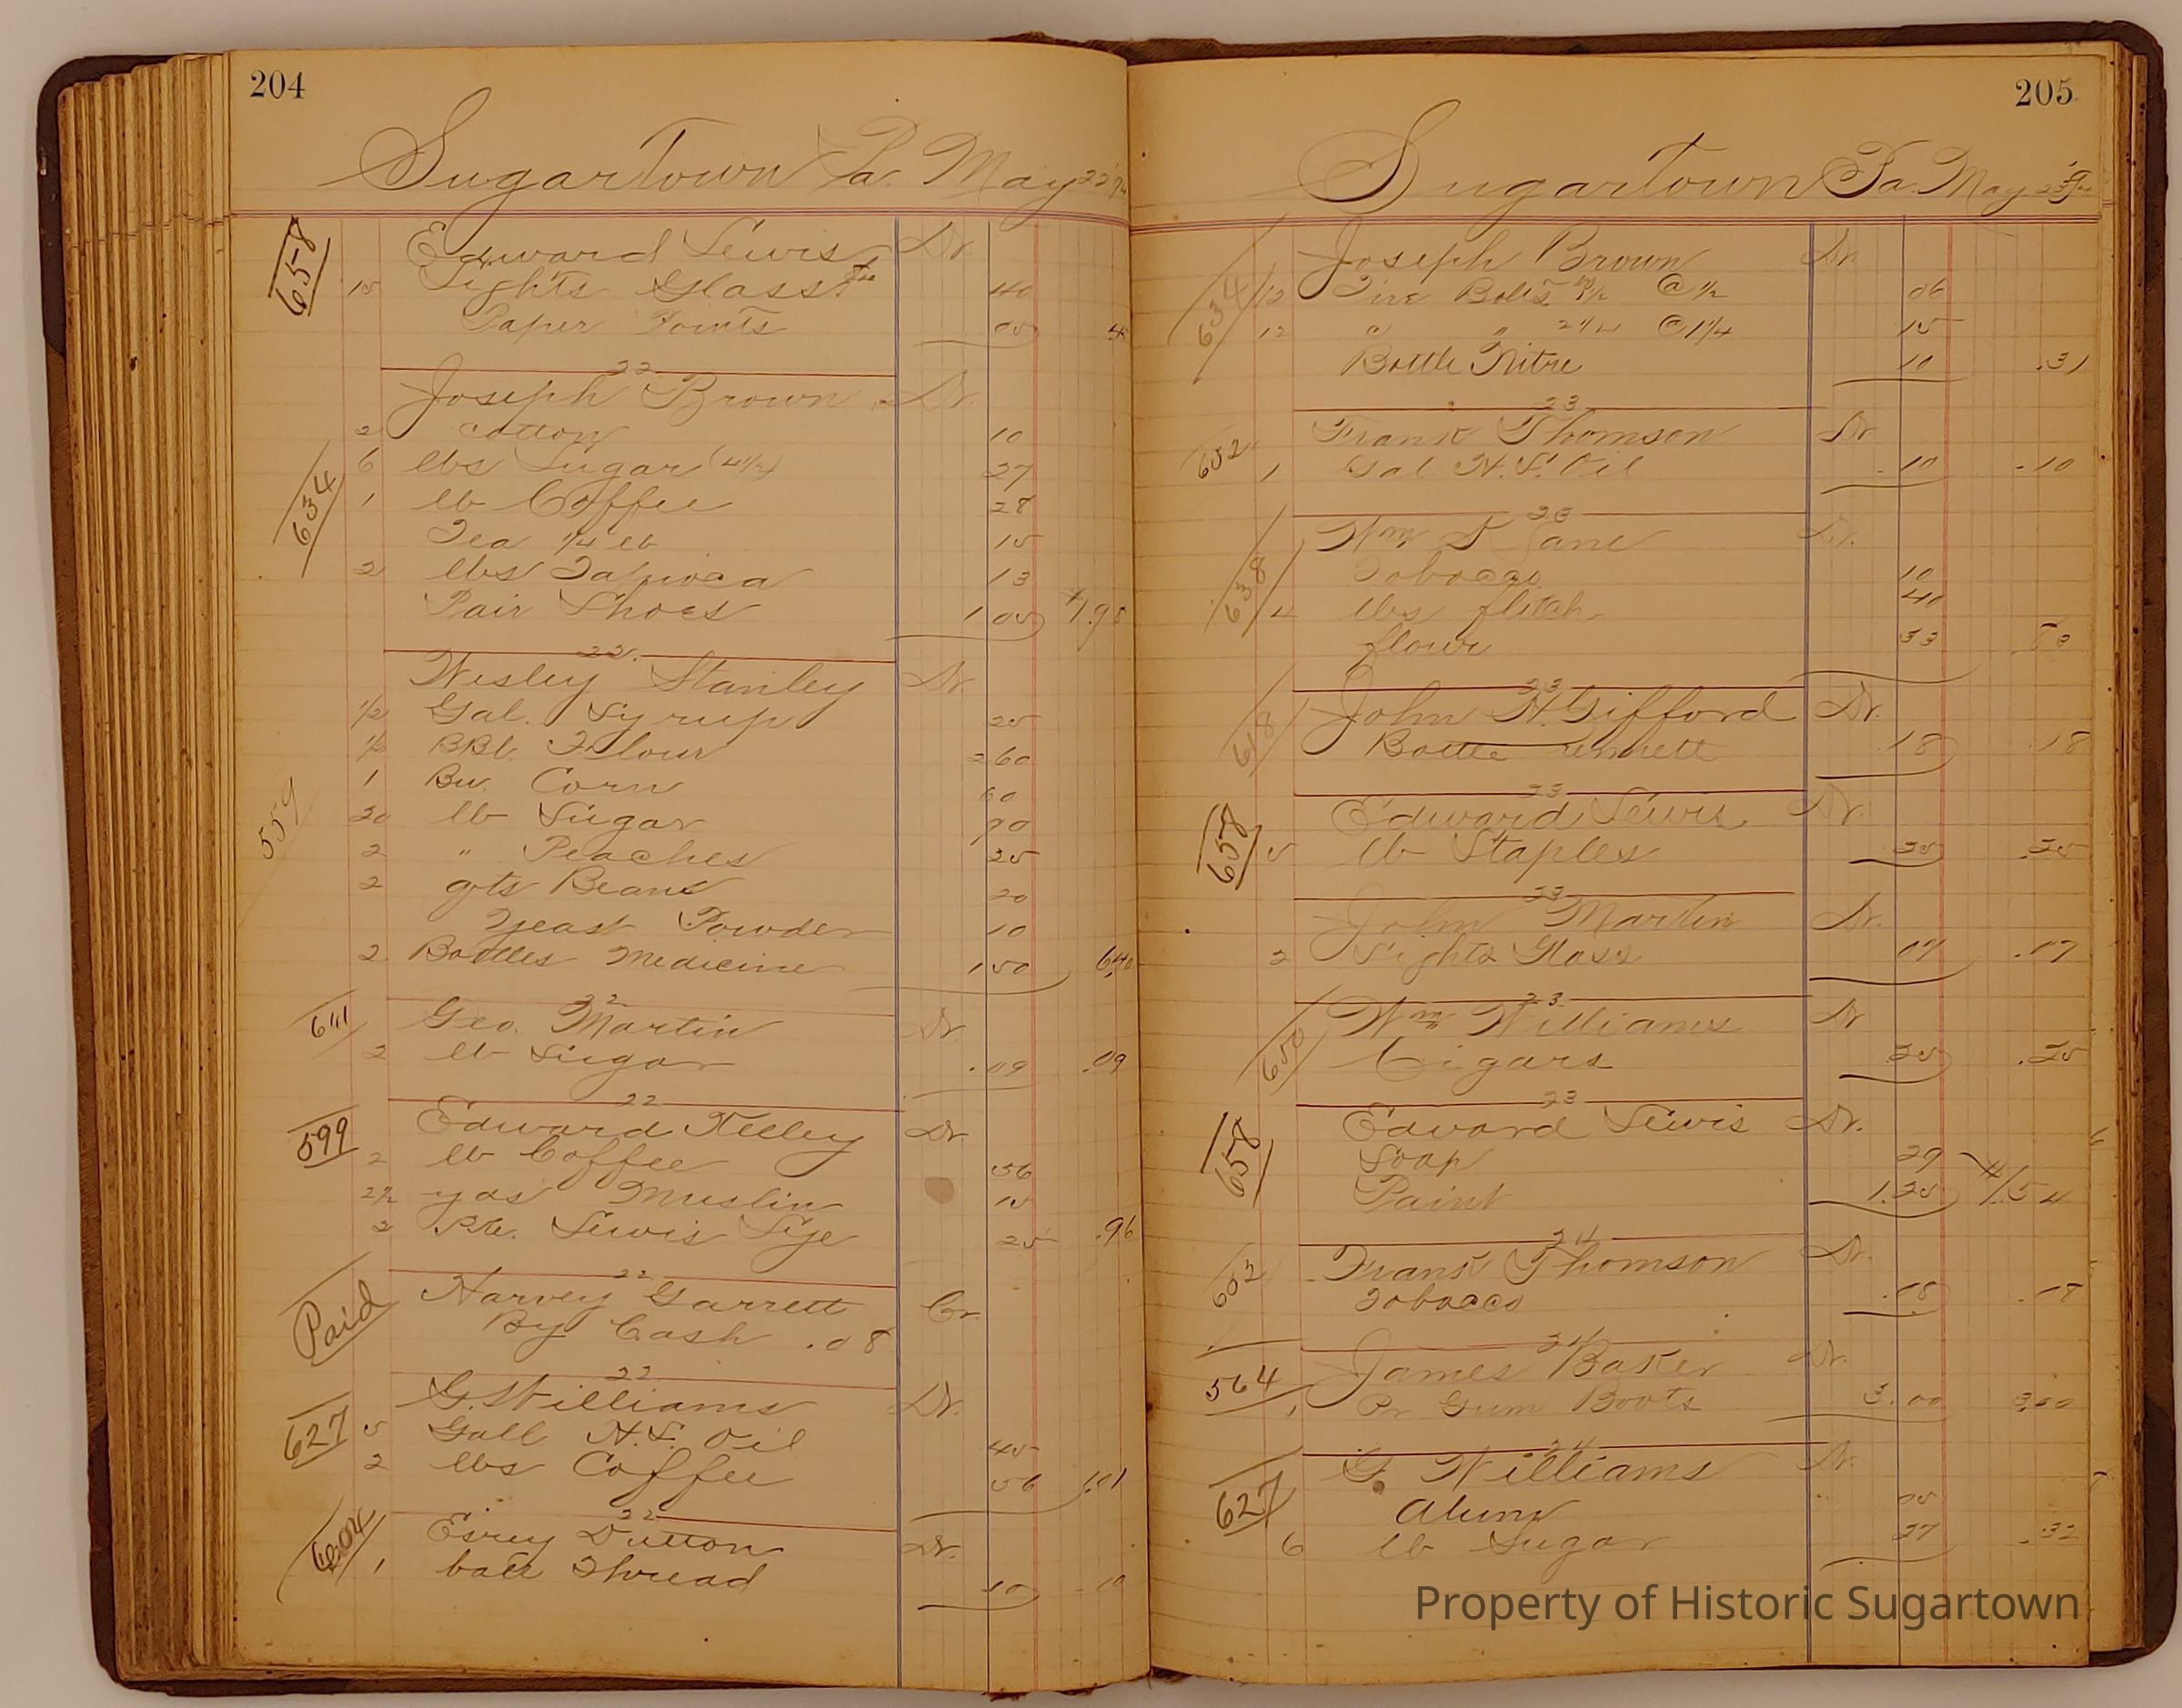 204
Sugartown Pa. May 22
658 Edward Lewis Dr.
15 Lights Glass 40
Paper Points 05 45
22
Joseph Brown Dr.
2 Cotton 10
6 lbs Sugar (4 1/2) 27
634 1 lb Coffee 28
Tea 1/4 lb 15
2 lbs Tapioca 13
Pair Shoes 1 05 1.98
22
Wesley Stanley Dr.
1/2 Gal. Syrup 25
1/2 BBl. Flour 2 60
1 Bu. Corn 60
559 20 lb Sugar 90
2 " Peaches 25
2 qts Beans 20
Yeast Powder 10
2 Bottles Medicine 1 50 6.40
22
641 Geo. Martin Dr.
2 lb Sugar .09 .09
22
599 Edward Kelley Dr.
2 lb Coffee 56
2 1/2 yds Muslin 15
2 Pks. Lewis Lye 25 .96
22
Paid Harvey Garrett Cr.
By Cash .08
22
627 G. Williams Dr.
5 Gall H.L. Oil 45
2 lbs Coffee 56 1.01
22
604 Dutton Dr.
1 ball Thread 10 10
205
Sugartown Pa. May 23
634 Joseph Brown Dr.
12 Tire Bolts @ 1/2 06
12 " " @ 1 1/4 15
Bottle Nitre 10 .31
23
602 Frank Thomson Dr.
1 Gal H.L. Oil .10 .10
23
638 Wm Lane Dr.
Tobacco 10
4 lbs flitch 40
flour 33 83
23
618 John H. Gifford Dr.
Bottle rennett .18 .18
23
658 Edward Lewis Dr.
5 lb Staples 25 .25
23
John Martin Dr.
2 Lights Glass 07 .07
23
650 Wm Williams Dr.
Cigars 25 .25
23
658 Edward Lewis Dr.
Soap 29
Paint 1.25 1.54
24
602 Frank Thomson Dr.
Tobacco .08 .08
24
564 James Baker Dr.
1 Pr Gum Boots 3.00 3.00
24
627 G. Williams Dr.
Alum 05
6 lb Sugar 27 .32
Property of Historic Sugartown